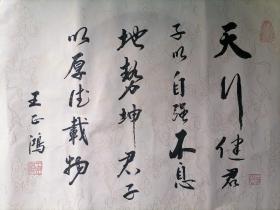 天行健君
子以自强不息
地势坤君子
以厚德載物
王正鴻